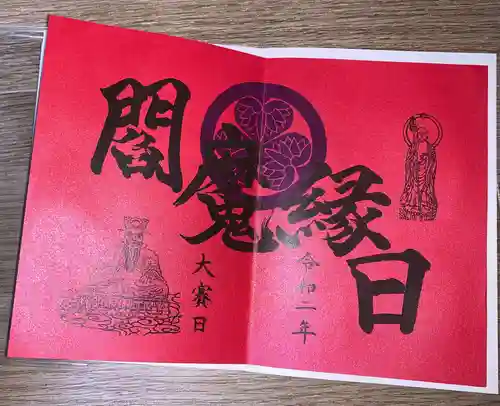 閻魔縁日
大賽日
令和二年